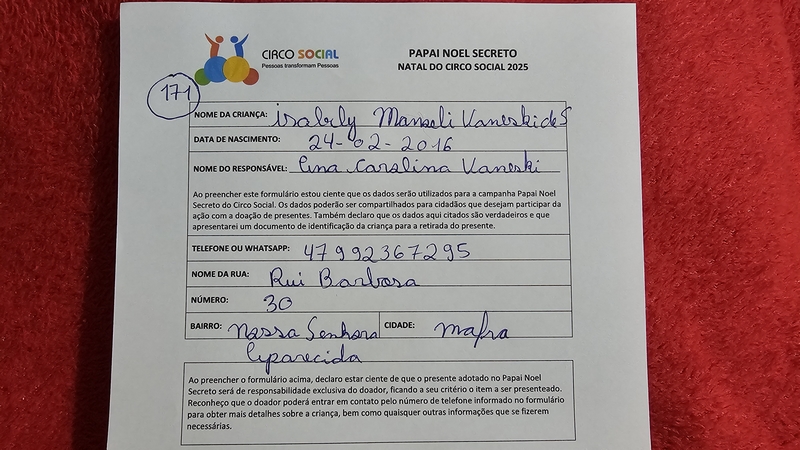 CIRCO SOCIAL
Pessoas transformam Pessoas
PAPAI NOEL SECRETO
NATAL DO CIRCO SOCIAL 2025
171
NOME DA CRIANÇA: isabely Manueli Vaneski de S
DATA DE NASCIMENTO: 24-02-2016
NOME DO RESPONSÁVEL: Ana Carolina Vaneski
Ao preencher este formulário estou ciente que os dados serão utilizados para a campanha Papai Noel
Secreto do Circo Social. Os dados poderão ser compartilhados para cidadãos que desejam participar da
ação com a doação de presentes. Também declaro que os dados aqui citados são verdadeiros e que
apresentarei um documento de identificação da criança para a retirada do presente.
TELEFONE OU WHATSAPP: 47992367295
NOME DA RUA: Rui Barbosa
NÚMERO: 30
BAIRRO: Nossa Senhora CIDADE: mafra
Aparecida
Ao preencher o formulário acima, declaro estar ciente de que o presente adotado no Papai Noel
Secreto será de responsabilidade exclusiva do doador, ficando a seu critério o item a ser presenteado.
Reconheço que o doador poderá entrar em contato pelo número de telefone informado no formulário
para obter mais detalhes sobre a criança, bem como quaisquer outras informações que se fizerem
necessárias.